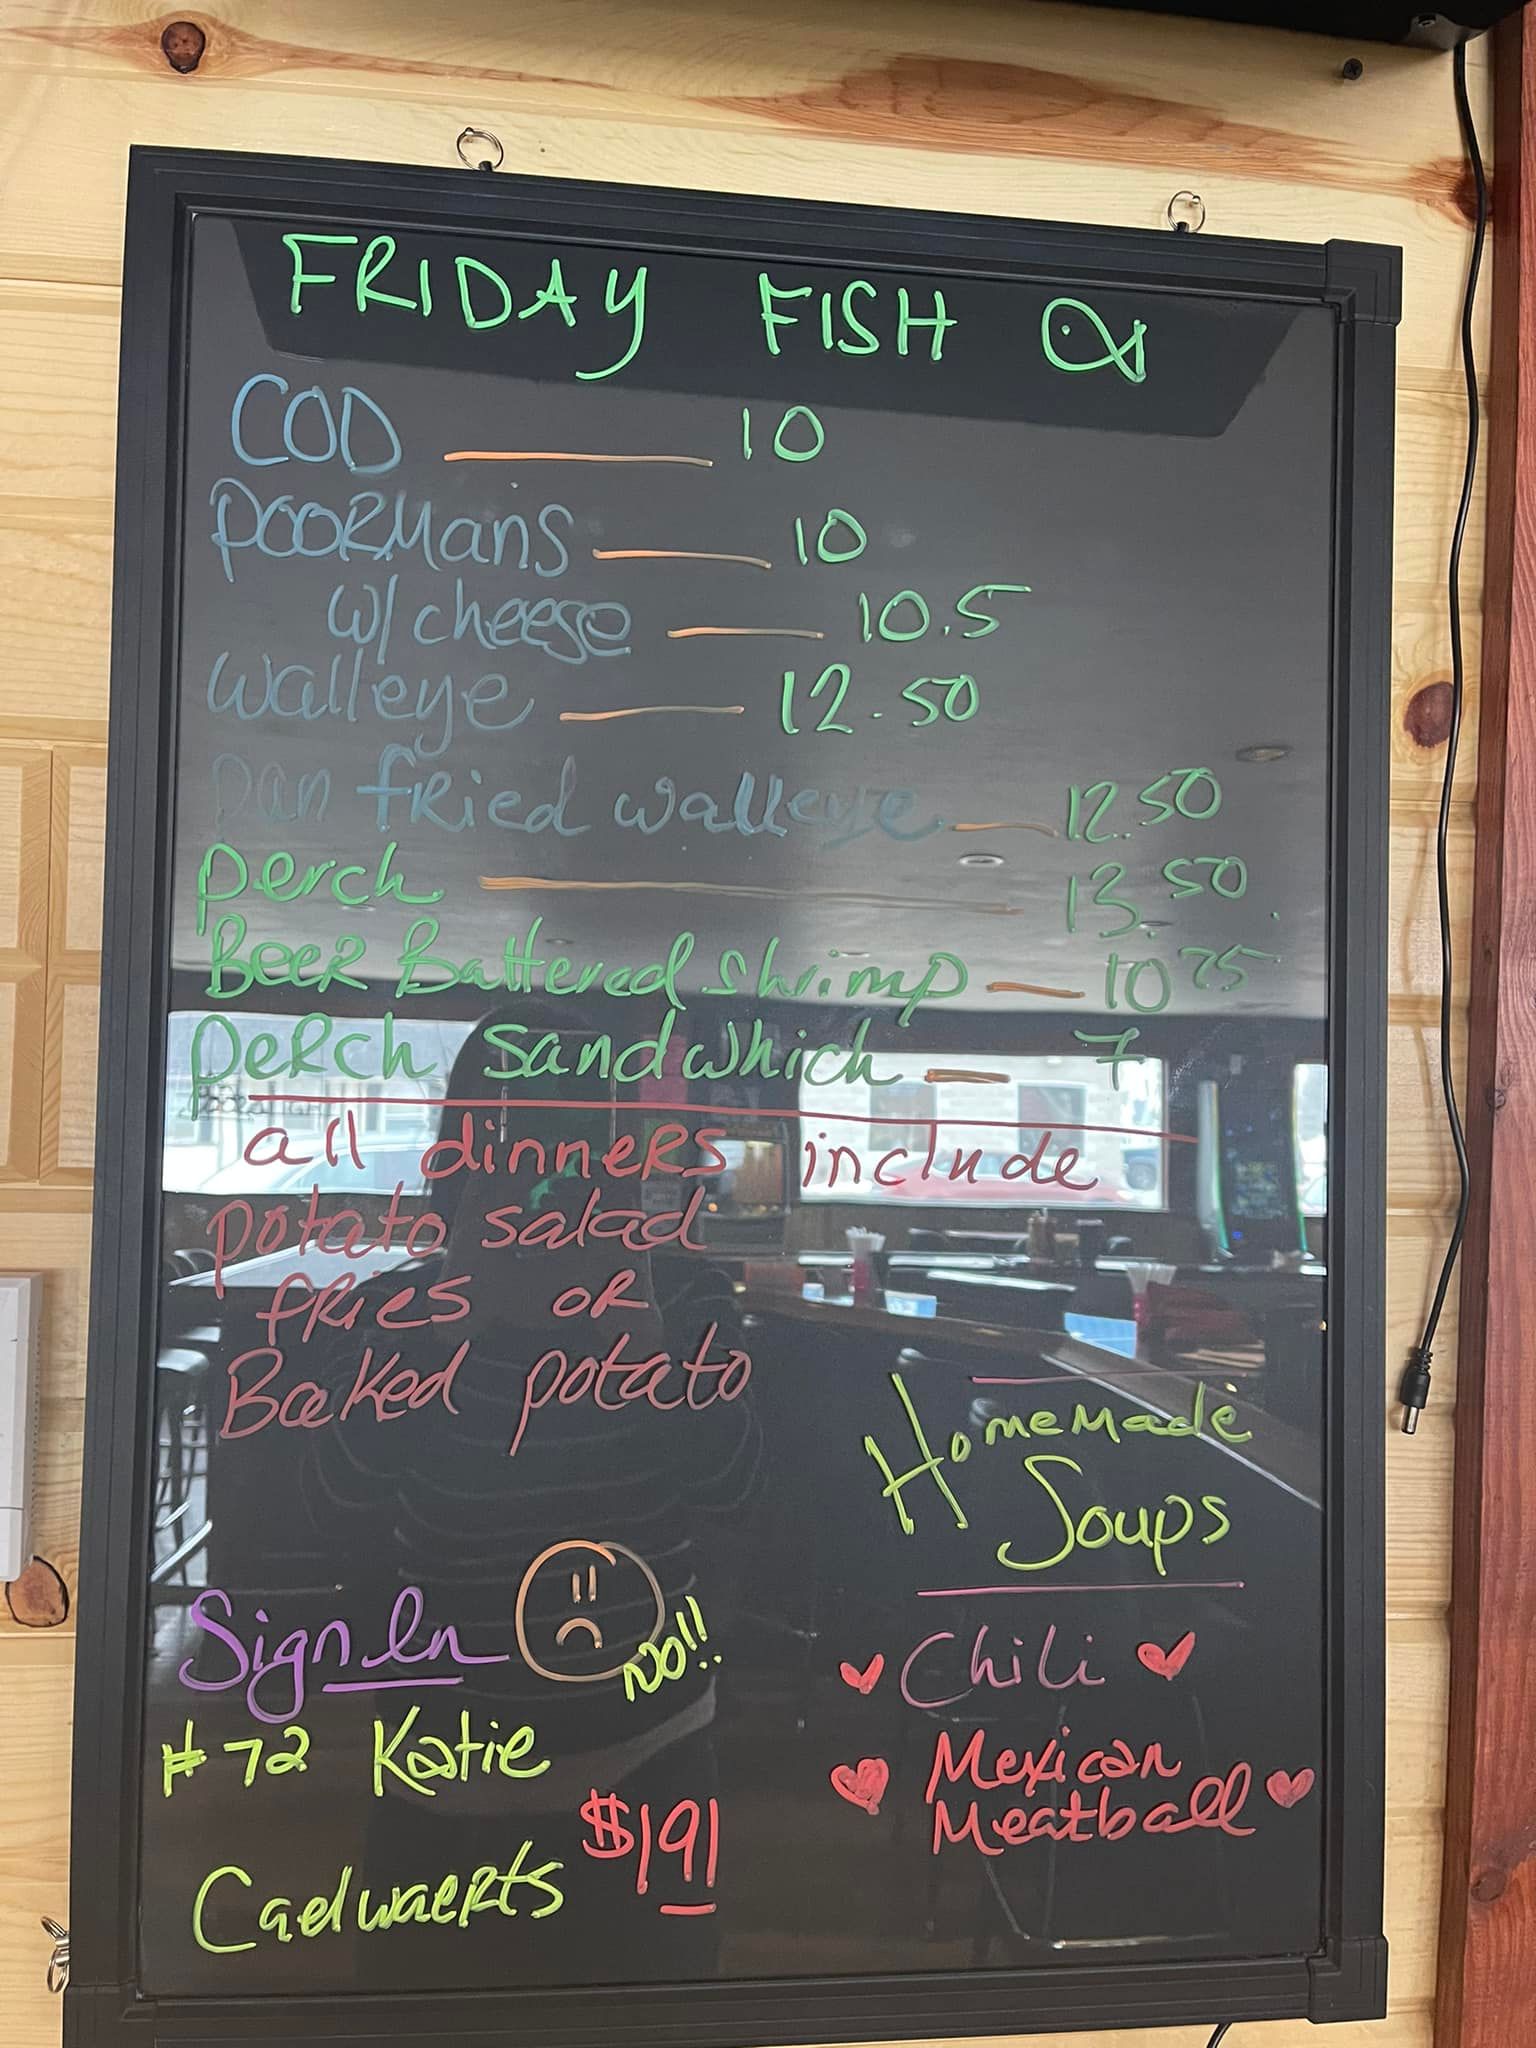 FRIDAY FISH
COD 10
POORMans 10
w/cheese 10.5
walleye 12.50
pan fried walleye 12.50
perch 13.50
BeeR Battered shrimp 10 75
peRch sandwhich 7
all dinneRs include
potato salad
fRies oR
Baked potato
HomeMade
Soups
Sign In NO!!
#72 Katie
$191
CadwaeRts
Chili
Mexican
Meatball